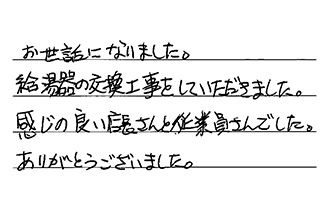 お世話になりました。
給湯器の交換工事をしていただきました。
感じの良い店長さんと従業員さんでした。
ありがとうございました。